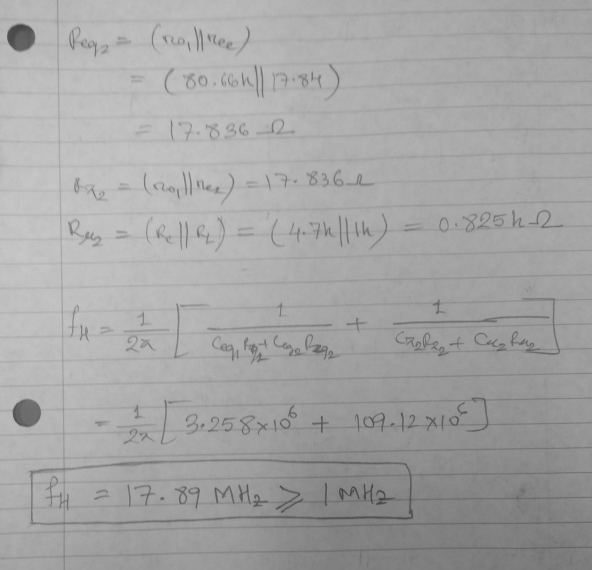 Req₂ = (ro₁||re₂)
= (80.66k||17.84)
= 17.836 Ω
Rπ₂ = (ro₁||re₂) = 17.836 Ω
Rμ₂ = (Rc||RL) = (4.7k||1k) = 0.825k Ω
fH = 1/2π [ 1/(Ceq₁Req₁ + Ceq₂Req₂) + 1/(Cπ₂Rπ₂ + Cμ₂Rμ₂) ]
= 1/2π [ 3.258×10⁶ + 109.12×10⁶ ]
fH = 17.89 MHz ⩾ 1 MHz